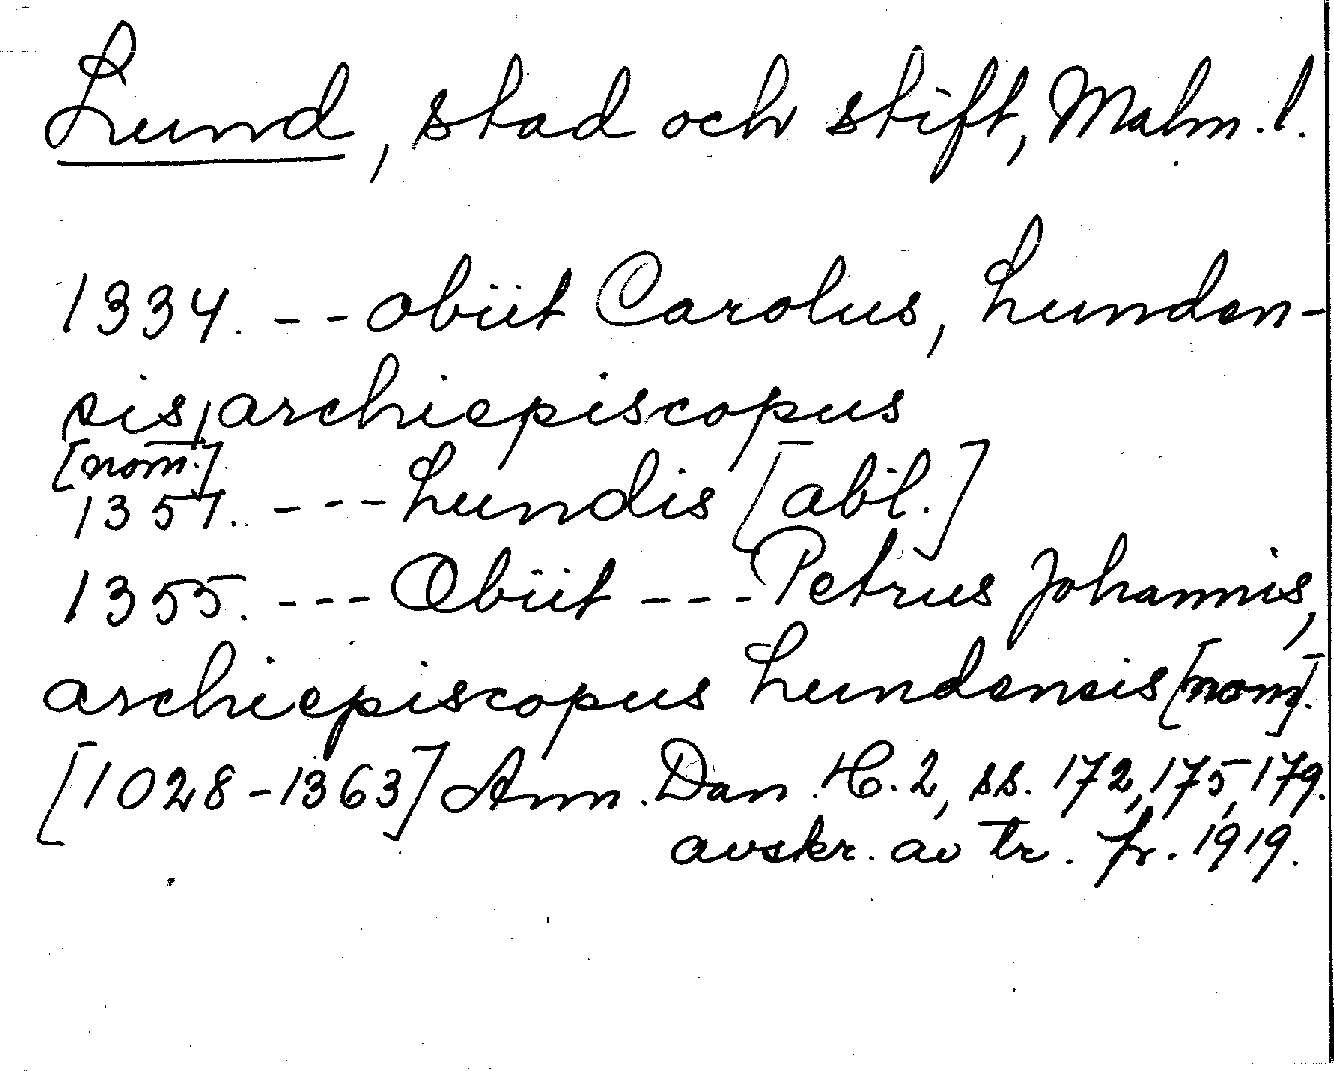 Lund, stad och stift, Malm. l.
1334. --- obiit Carolus, Lunden-
sis, archiepiscopus
[nom.]
1351. --- Lundis [abl.]
1355. --- Obiit --- Petrus Johannis,
archiepiscopus Lundensis [nom].
[1028-1363] Ann. Dan. H. 2, ss. 172, 175, 179.
avskr. av tr. fr. 1919.